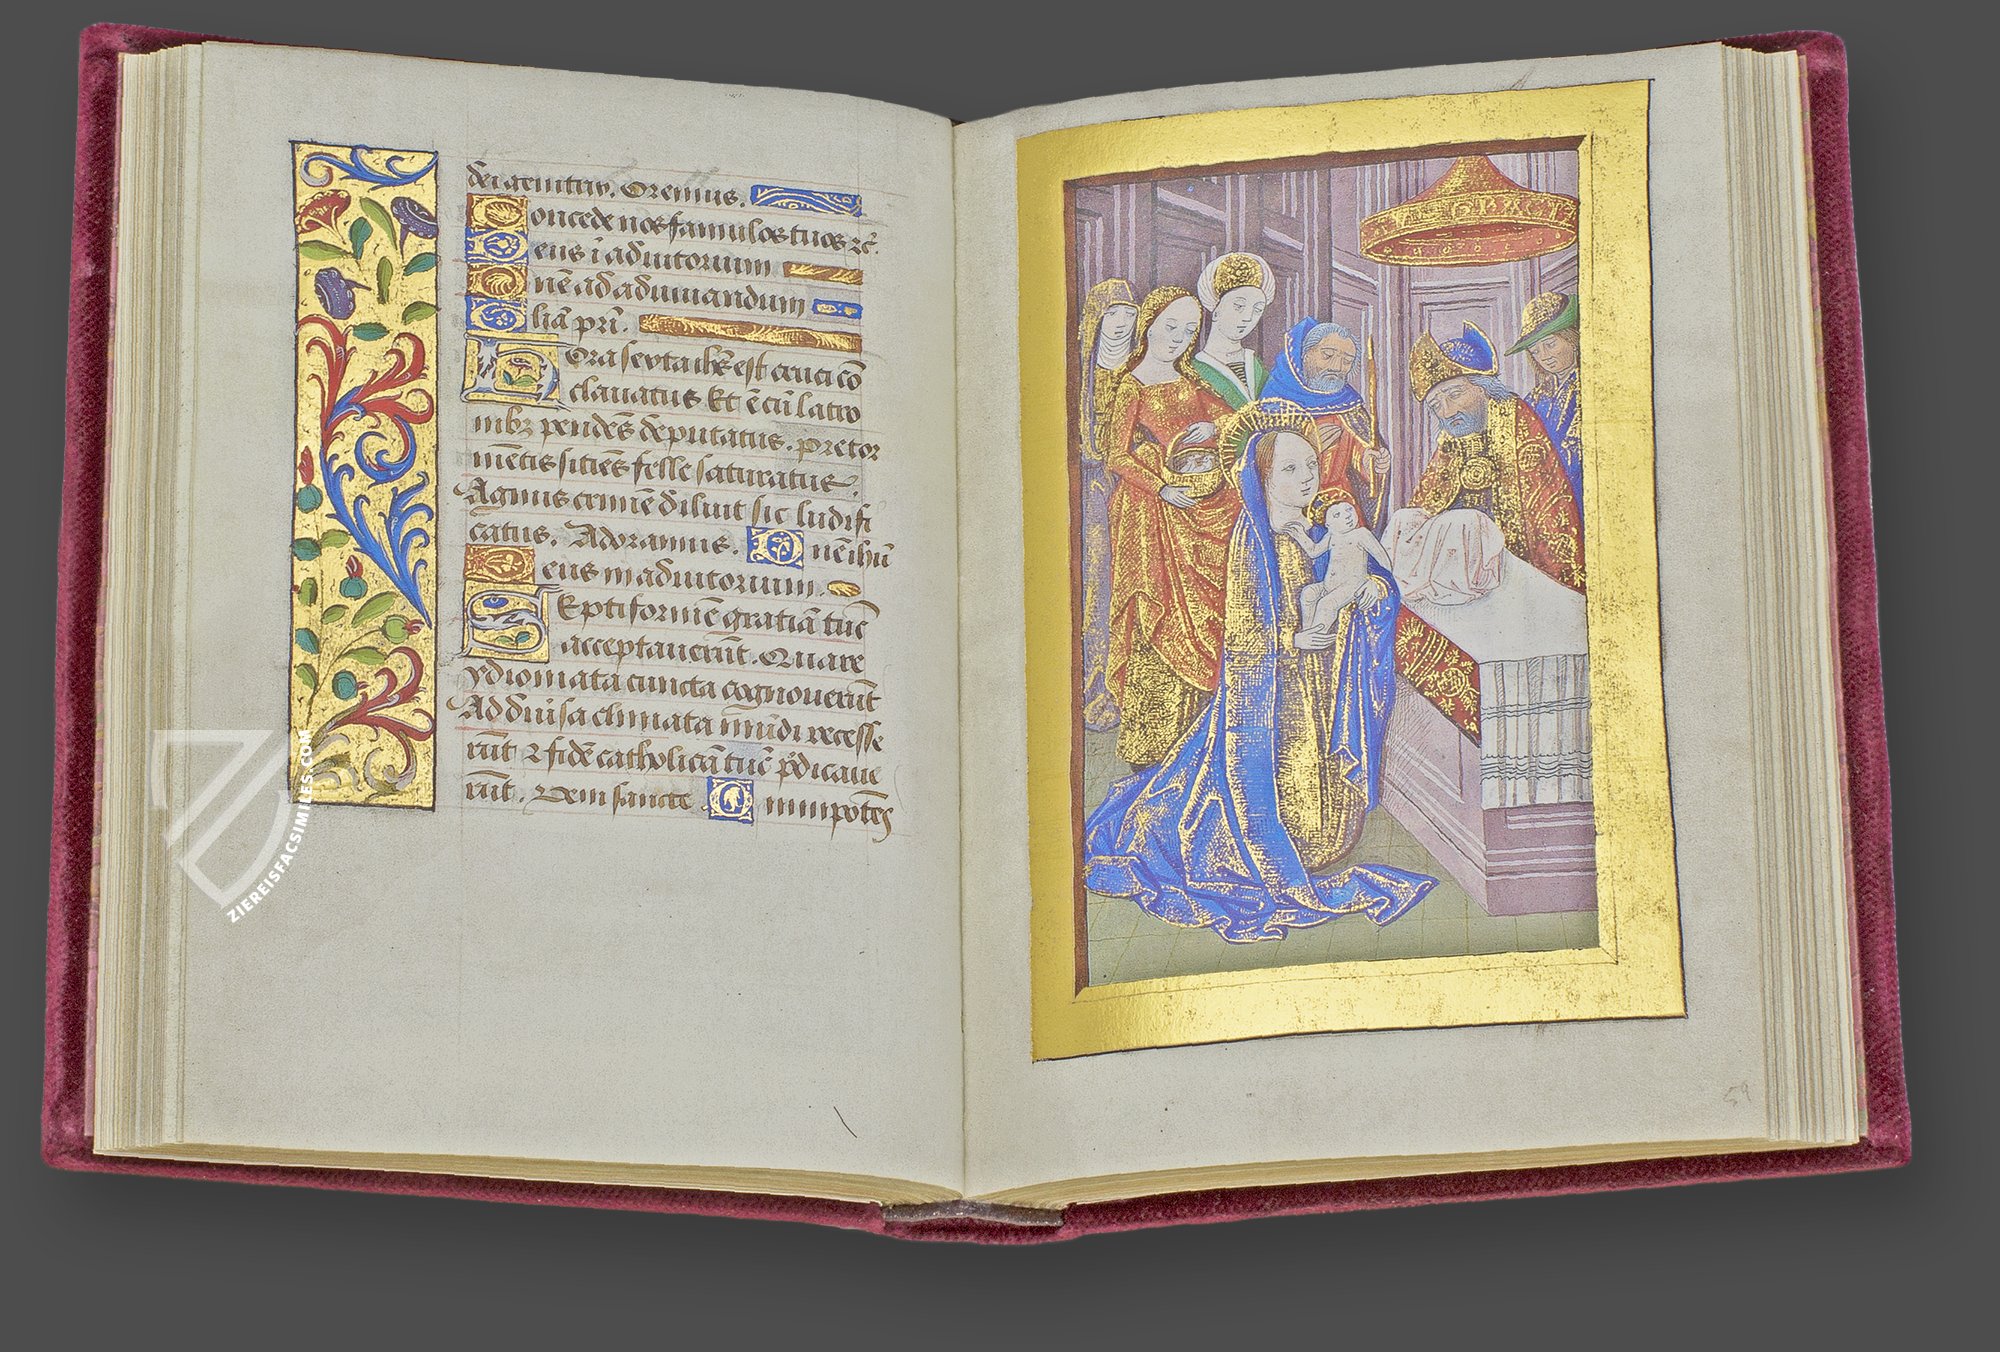 dei genitrix. Oremus.
Concede nos famulos tuos zc̃.
Deus ĩ adiutorium
Dñe ad adiuuandum
Glia pri.
Hora sexta ihs̃ est cruci cõ
clauatus Et ẽ cũ latro
nibz pendẽs deputatus. Pre tor
mẽtis sitiẽs felle saturatus.
Agnus crimẽ diluit sic ludifi
catus. Adoramus. Dñe ihũ
Deus in adiutorium.
Septiformẽ gratiã tũc
acceptauerũt. Quare
ydiomata cuncta cognouerũt
Ad diũsa climata mũdi recesse
rũt z fidẽ catholicã tũc p̃dicaue
rũt. Veni sancte Omnipotẽs
59
ZIEREISFACSIMILES.COM